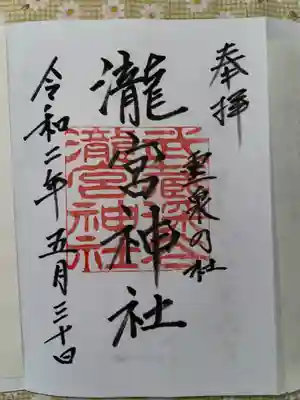 奉拝
霊泉の社
瀧宮神社
令和二年五月三十日
武蔵深谷
瀧宮神社